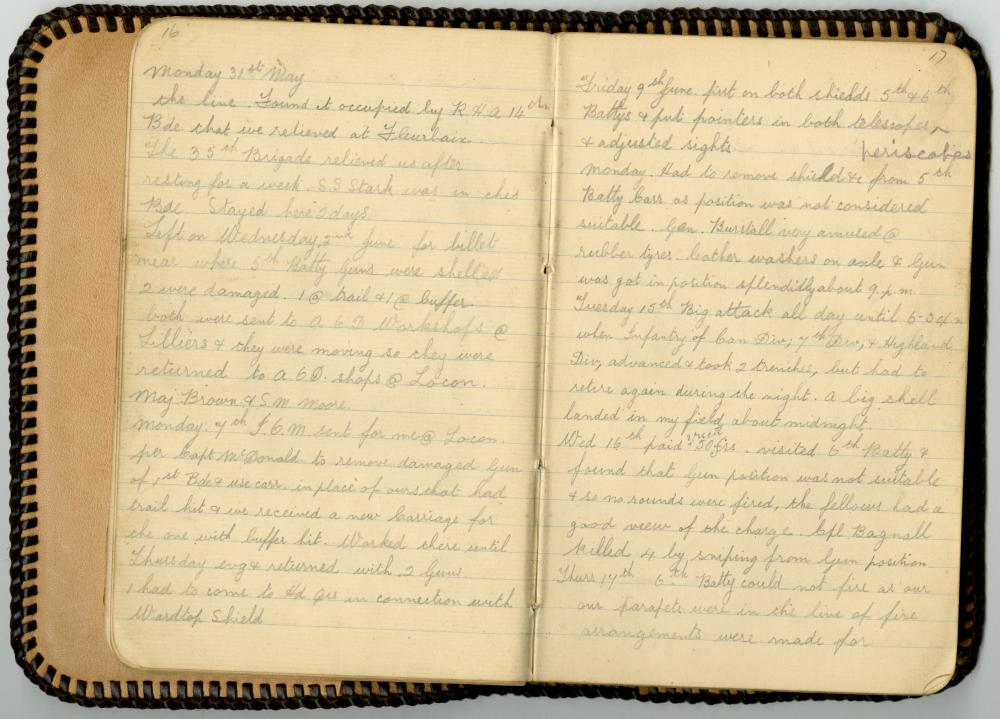 16
Monday 31st May
the line. Found it occupied by R.H.A 14th
Bde that we relieved at Fleurbaix.
The 35th Brigade relieved us after
resting for a week. S.S Stark was in this
Bde. Stayed here 2 days
Left on Wednesday, 2nd June for billet
near where 5th Batty Guns were shelled
2 were damaged. 1 @ trail & 1 @ buffer
both were sent to A.O.D Workshops @
Lilliers & they were moving so they were
returned to A.O.D. shops @ Locon.
Maj Brown & S.M. Moore.
Monday 7th I.O.M sent for me @ Locon
per Capt McDonald to remove damaged Gun
of 1st Bde & use carr. in place of ours that had
trail hit & we received a new Carriage for
the one with buffer hit. Worked there until
Thursday evg & returned with 2 Guns
I had to come to Hd Qrs in connection with
Wardtop Shield
17
Friday 9th June. first on both shields 5th & 6th
Battys & put pointers in both telescopes,
& adjusted sights. periscopes
Monday. Had to remove shield &c from 5th
Batty Carr as position was not considered
suitable. Gen. Burstall very amused @
rubber tyres. leather washers on axle & Gun
was got in position splendidly about 9.p.m.
Tuesday 15th Big attack all day until 6-30
when Infantry of Can Div, 7th Div, & Highland
Div, advanced & took 2 trenches, but had to
retire again during the night. A big shell
landed in my field, about midnight.
Wed 16th paid 30 frs. visited 6th Batty &
found that Gun position was not suitable
& so no rounds were fired, the fellows had a
good view of the charge. Cpl Bagnall
killed, 4 by sniping from Gun position
Thurs 17th 6th Batty could not fire as our
our parapets were in the line of fire
arrangements were made for